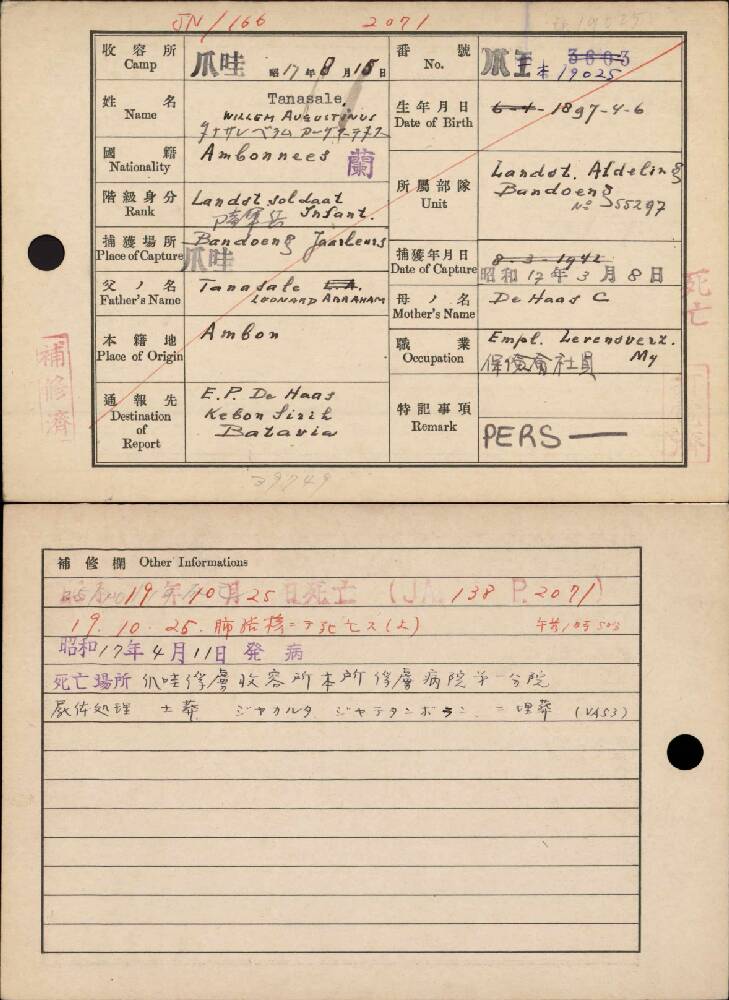 JN/166 2071
収容所 Camp 爪哇 昭17年8月15日
番號 No. 爪本 3603 19025
姓名 Name Tanasale.
WILLEM AUGUSTINUS
生年月日 Date of Birth 6-4- 1897-4-6
國籍 Nationality Ambonnees 蘭
所屬部隊 Unit Landst. Afdeling
Bandoeng
No 55297
階級身分 Rank Landst soldaat
Infant.
捕獲場所 Place of Capture Bandoeng Jaarleurs
爪哇
捕獲年月日 Date of Capture 8-3-1942
昭和17年3月8日
父ノ名 Father's Name Tanasale L.A.
LEONARD ABRAHAM
母ノ名 Mother's Name De Haas C
本籍地 Place of Origin Ambon
職業 Occupation Empl. Levensverz. My
保險會社員
通報先 Destination of Report E.P. De Haas
Kebon Sirih
Batavia
特記事項 Remark PERS—
死亡
補修濟
39749
補修欄 Other Informations
昭和19年10月25日死亡 (JA. 138 P. 2071)
19.10.25.
昭和17年4月11日 発病
死亡場所 爪哇俘虜收容所本所俘虜病院第一分院
屍体処理 土葬 ジャカルタ ニ埋葬 (VA53)